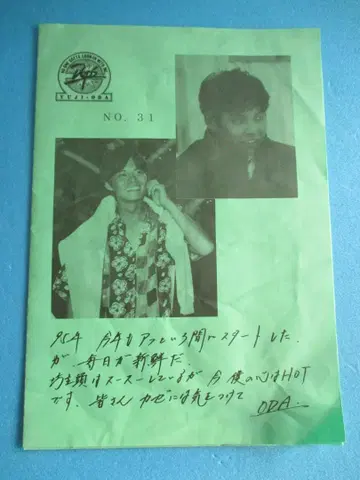 YUJI・ODA
NO. 31
'94 今年もアッという間にスタートした
が 毎日が新鮮だ。
坊主頭はスースーしているが 今 僕の心はHOT
です。皆さん カゼには気をつけて
ODA.